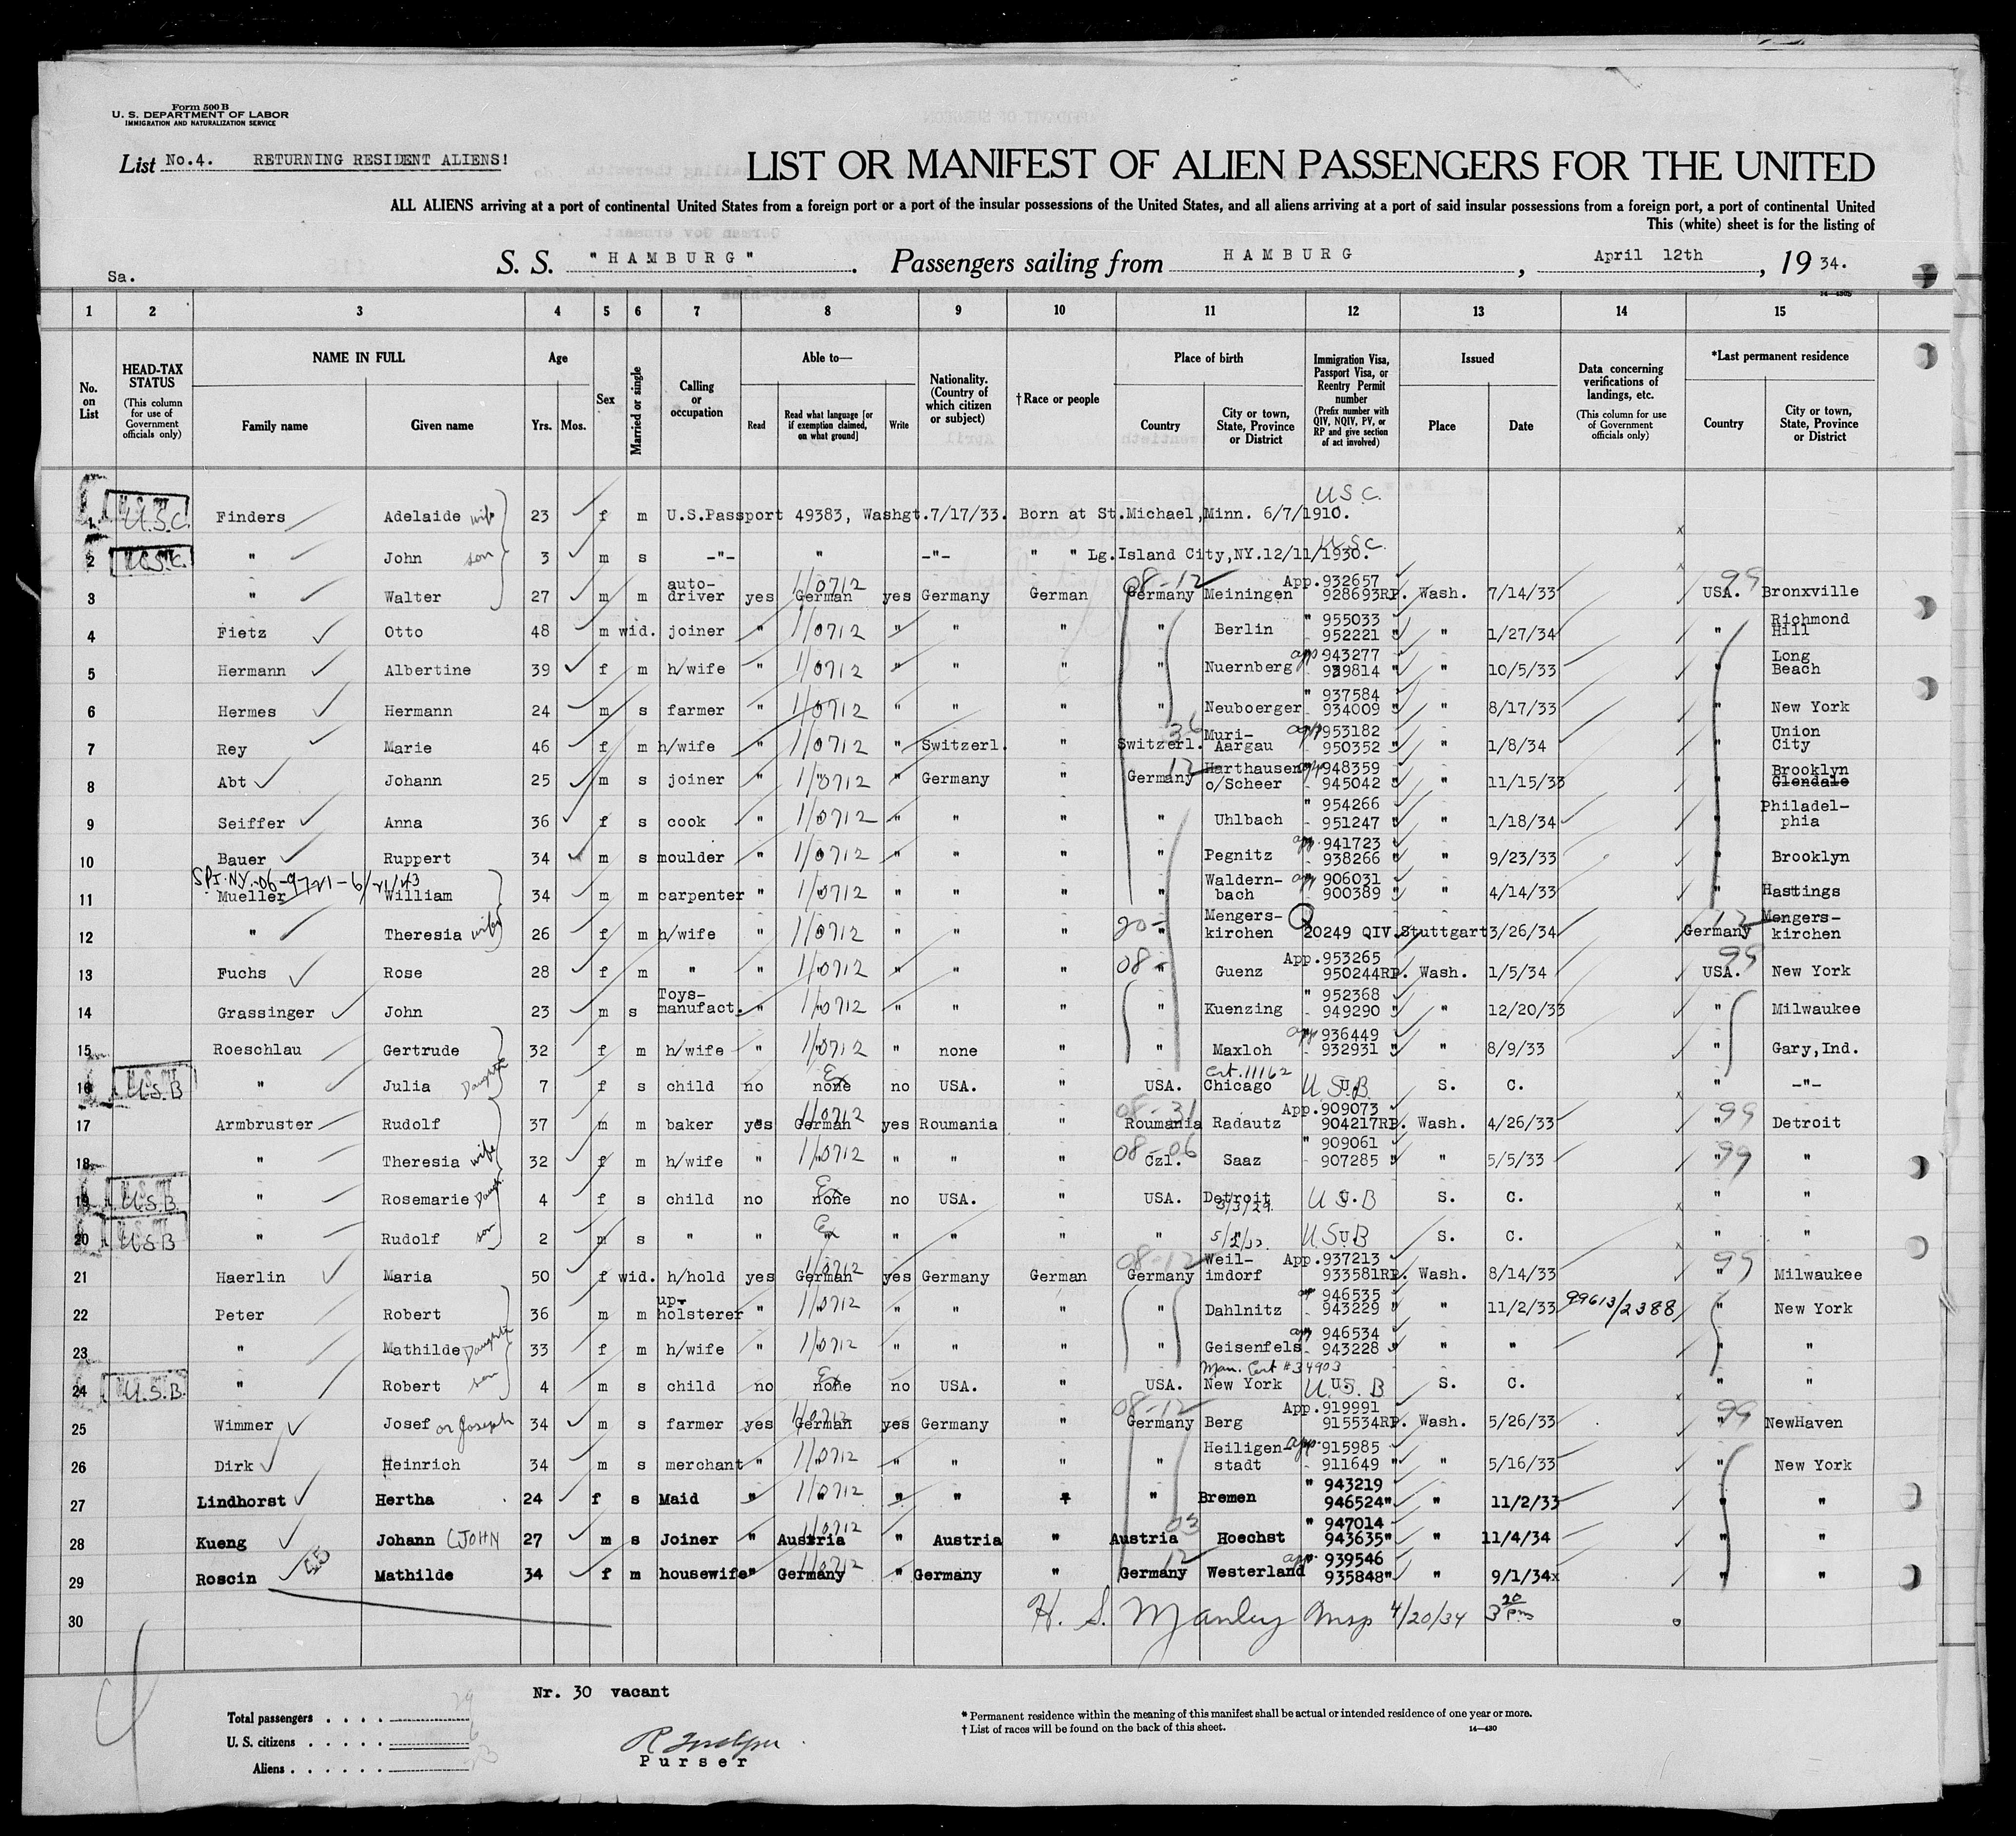 Form 500 B
U. S. DEPARTMENT OF LABOR
IMMIGRATION AND NATURALIZATION SERVICE
List No.4. RETURNING RESIDENT ALIENS!
LIST OR MANIFEST OF ALIEN PASSENGERS FOR THE UNITED
ALL ALIENS arriving at a port of continental United States from a foreign port or a port of the insular possessions of the United States, and all aliens arriving at a port of said insular possessions from a foreign port, a port of continental United
This (white) sheet is for the listing of
Sa. S. S. "HAMBURG". Passengers sailing from HAMBURG, April 12th, 1934.
1 2 3 4 5 6 7 8 9 10 11 12 13 14 15
No. on List
HEAD-TAX STATUS (This column for use of Government officials only)
NAME IN FULL Family name Given name
Age Yrs. Mos.
Sex
Married or single
Calling or occupation
Able to— Read Read what language [or if exemption claimed, on what ground] Write
Nationality. (Country of which citizen or subject)
† Race or people
Place of birth Country City or town, State, Province or District
Immigration Visa, Passport Visa, or Reentry Permit number (Prefix number with QIV, NQIV, PV, or RP and give section of act involved)
Issued Place Date
Data concerning verifications of landings, etc. (This column for use of Government officials only)
*Last permanent residence Country City or town, State, Province or District
1 U.S.C. Finders Adelaide wife 23 f m U.S.Passport 49383, Washgt.7/17/33. Born at St.Michael,Minn. 6/7/1910. U S C.
2 U.S.C. " John son 3 m s -"- " -"- " " Lg.Island City,NY.12/11/1930. U.S.C.
3 " Walter 27 m m auto-driver yes German 1/0712 yes Germany German Germany 08-12 Meiningen App.932657 928693RP. Wash. 7/14/33 USA. 99 Bronxville
4 Fietz Otto 48 m wid. joiner " 1/0712 " " " " Berlin " 955033 952221 " " 1/27/34 " Richmond Hill
5 Hermann Albertine 39 f m h/wife " 1/0712 " " " " Nuernberg app 943277 939814 " " 10/5/33 " Long Beach
6 Hermes Hermann 24 m s farmer " 1/0712 " " " " Neuboerger " 937584 934009 " " 8/17/33 " New York
7 Rey Marie 46 f m h/wife " 1/0712 " Switzerl. " Switzerl. 36 Muri-Aargau app 953182 950352 " " 1/8/34 " Union City
8 Abt Johann 25 m s joiner " 1/0712 " Germany " Germany 12 Harthausen o/Scheer app 948359 945042 " " 11/15/33 " Brooklyn Glendale
9 Seiffer Anna 36 f s cook " 1/0712 " " " " Uhlbach " 954266 951247 " " 1/18/34 " Philadelphia
10 Bauer Ruppert 34 m s moulder " 1/0712 " " " " Pegnitz app. 941723 938266 " " 9/23/33 " Brooklyn
SPI-NY.-06-9721-6/21/43
11 Mueller William 34 m m carpenter " 1/0712 " " " " Waldernbach app 906031 900389 " " 4/14/33 " Hastings
12 " Theresia wife 26 f m h/wife " 1/0712 " " " 20- " Mengerskirchen 20249 QIV. Stuttgart 3/26/34 Germany 12 Mengerskirchen
13 Fuchs Rose 28 f m " " 1/0712 " " " 08- " Guenz App.953265 950244RP. Wash. 1/5/34 USA. 99 New York
14 Grassinger John 23 m s Toys-manufact. " 1/0712 " " " " Kuenzing " 952368 949290 " " 12/20/33 " Milwaukee
15 Roeschlau Gertrude 32 f m h/wife " 1/0712 " none " " Maxloh app 936449 932931 " " 8/9/33 " Gary,Ind.
16 U.S.B " Julia Daughter 7 f s child no none Ex no USA. " USA. Chicago Cert.11162 U.S.B S. C. " -"-
17 Armbruster Rudolf 37 m m baker yes German 1/0712 yes Roumania " Roumania 08-31 Radautz App.909073 904217RP. Wash. 4/26/33 " 99 Detroit
18 " Theresia wife 32 f m h/wife " 1/0712 " " " Czl. 08-06 Saaz " 909061 907285 " " 5/5/33 " 99 "
19 U.S.B " Rosemarie Daugh. 4 f s child no none Ex no USA. " USA. Detroit 3/3/29 U.S.B S. C. " "
20 U.S.B " Rudolf son 2 m s " " " Ex " " " " U.S.B S. C. " "
21 Haerlin Maria 50 f wid. h/hold yes German 1/0712 yes Germany German Germany 08-12 Weilimdorf App.937213 933581RP. Wash. 8/14/33 " 99 Milwaukee
22 Peter Robert 36 m m up-holsterer " 1/0712 " " " " Dahlnitz " 946535 943229 " " 11/2/33 99613/2388 " New York
23 " Mathilde Daughter 33 f m h/wife " 1/0712 " " " " Geisenfels app 946534 943228 " " " " "
24 U.S.B. " Robert son 4 m s child no none Ex no USA. " USA. New York Man. Cert #34903 U.S.B S. C. " "
25 Wimmer Josef or Joseph 34 m s farmer yes German 1/0712 yes Germany " Germany 08-12 Berg App.919991 915534RP. Wash. 5/26/33 " 99 NewHaven
26 Dirk Heinrich 34 m s merchant " 1/0712 " " " " Heiligenstadt app. 915985 911649 " " 5/16/33 " New York
27 Lindhorst Hertha 24 f s Maid " 1/0712 " " " " Bremen " 943219 946524" " 11/2/33 " "
28 Kueng Johann (JOHN 27 m s Joiner " Austria 1/0712 " Austria " Austria 03 Hoechst " 947014 943635" " 11/4/34 " "
29 Roscin Mathilde 34 f m housewife " Germany 1/0712 " Germany " Germany 12 Westerland app. 939546 935848" " 9/1/34x " "
30 H. S. Manley Insp 4/20/34 3 20 pm
Nr. 30 vacant
Total passengers . . . . 29
U. S. citizens . . . . . 6
Aliens . . . . . . 23
Purser
* Permanent residence within the meaning of this manifest shall be actual or intended residence of one year or more.
† List of races will be found on the back of this sheet. 14—430